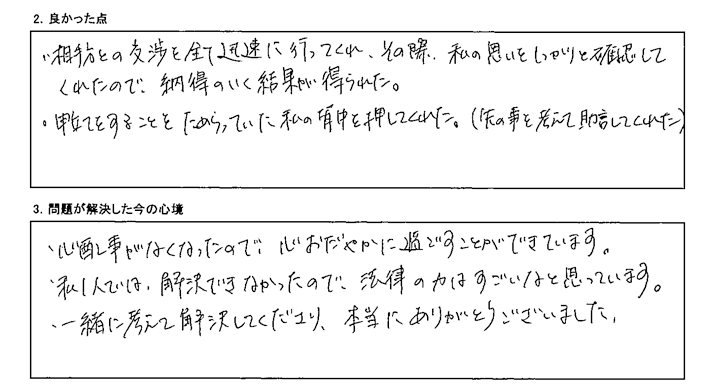 2. 良かった点
・相手方との交渉を全て迅速に行ってくれ、その際、私の思いをしっかりと確認して
くれたので、納得のいく結果が得られた。
・申立てをすることをためらっていた私の背中を押してくれた。(先の事を考えて助言してくれた)
3. 問題が解決した今の心境
・心配事がなくなったので、心おだやかに過ごすことができています。
・私1人では、解決できなかったので、法律の力はすごいなと思っています。
・一緒に考えて解決してくださり、本当にありがとうございました。